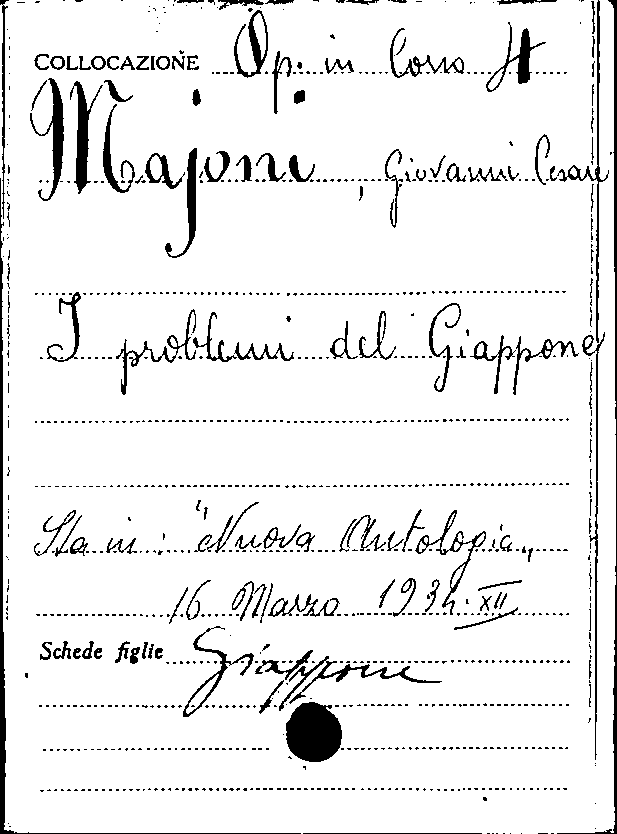 COLLOCAZIONE Op. in Corso H
Majoni, Giovanni Cesare
I problemi del Giappone
Sta in: "Nuova Antologia„
16 Marzo 1934. XII
Schede figlie Giappone